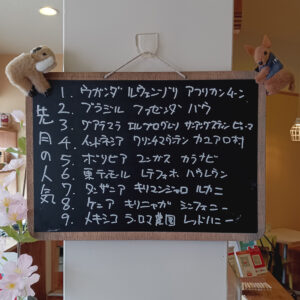 先月の人気
1. ウガンダ ルウェンゾリ アフリカンムーン
2. ブラジル ファゼンダ バウ
3. グアテマラ エルプログレソ サンアグスティン
4. インドネシア クリンチマウンテン カユアロ村
5. ボリビア ユンガス カラナビ
6. 東ティモール レテフォホ ハウレラン
7. タンザニア キリマンジャロ ルカニ
8. ケニア キリニャガ シンフォニー
9. メキシコ ラ・ロマ農園 レッドハニー